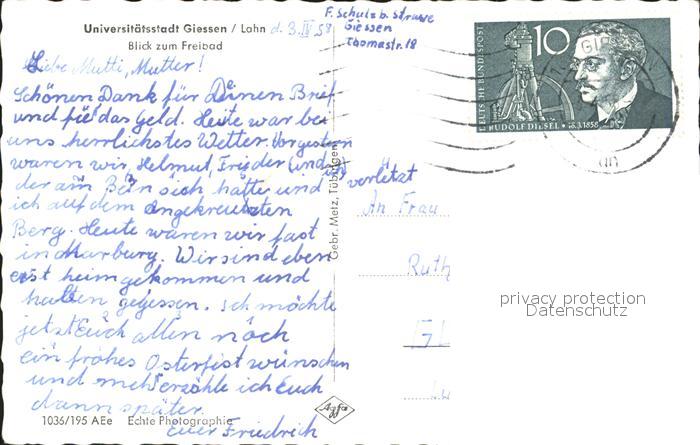 Universitätsstadt Giessen / Lahn d. 3. IV. 58
Blick zum Freibad
F. Schulz b. Strauve
Giessen
Thomastr. 18
Liebe Mutti, Mutter!
Schönen Dank für Deinen Brief
und für das Geld. Heute war bei
uns herrlichstes Wetter. Vorgestern
waren wir, Helmut, Frieder (und ich
der am Bein sich hatte und verletzt
ich auf dem angekreuzten
Berg. Heute waren wir fast
in Marburg. Wir sind eben
erst heimgekommen und
haben gegessen. Ich möchte
jetzt Euch allen noch
ein frohes Osterfest wünschen
und mehr erzähle ich Euch
dann später.
Euer Friedrich
1036/195 AEe Echte Photographie
Agfa
Gebr. Metz, Tübingen
DEUTSCHE BUNDESPOST
10
RUDOLF DIESEL * 18.3.1858
An Frau
Ruth
privacy protection
Datenschutz